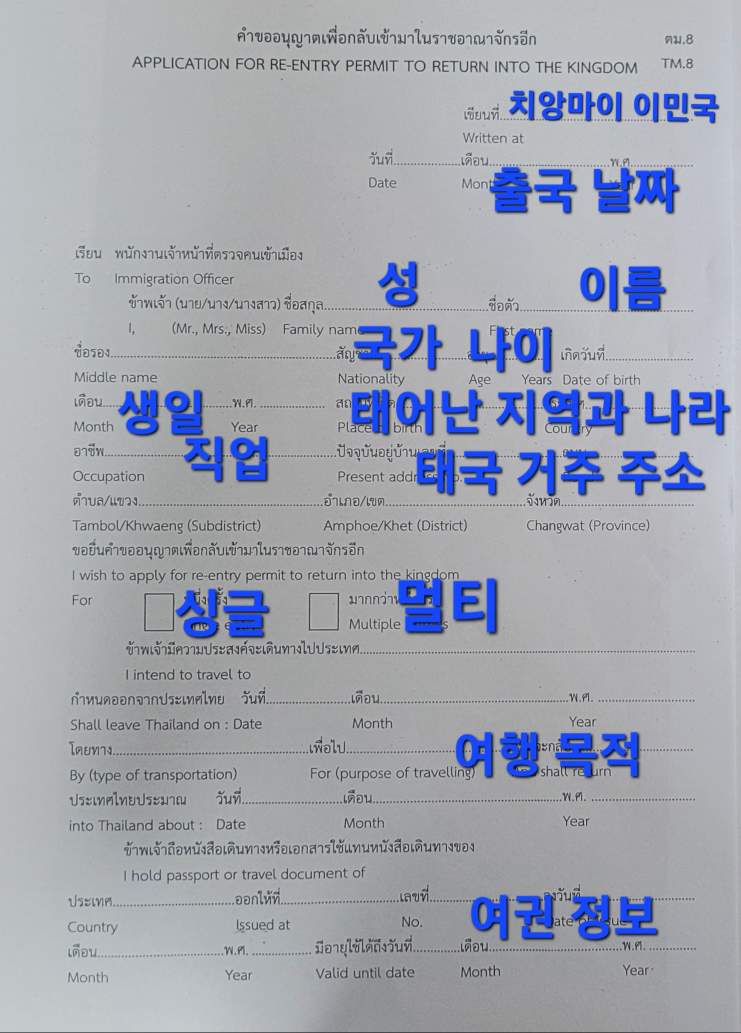 คำขออนุญาตเพื่อกลับเข้ามาในราชอาณาจักรอีก ตม.8
APPLICATION FOR RE-ENTRY PERMIT TO RETURN INTO THE KINGDOM TM.8
เขียนที่ 치앙마이 이민국
Written at
วันที่ เดือน พ.ศ.
Date Month 출국 날짜
เรียน พนักงานเจ้าหน้าที่ตรวจคนเข้าเมือง
To Immigration Officer 성 이름
ข้าพเจ้า (นาย/นาง/นางสาว) ชื่อสกุล ชื่อตัว
I, (Mr., Mrs., Miss) Family name First name
ชื่อรอง 국가 나이 เกิดวันที่
Middle name Nationality Age Years Date of birth
เดือน 생일 พ.ศ. 태어난 지역과 나라
Month Year Place birth Country
อาชีพ 직업 ปัจจุบันอยู่บ้านเลขที่
Occupation Present address 태국 거주 주소
ตำบล/แขวง อำเภอ/เขต จังหวัด
Tambol/Khwaeng (Subdistrict) Amphoe/Khet (District) Changwat (Province)
ขอยื่นคำขออนุญาตเพื่อกลับเข้ามาในราชอาณาจักรอีก
I wish to apply for re-entry permit to return into the kingdom
For 싱글 มากกว่า 멀티
Multiple
ข้าพเจ้ามีความประสงค์จะเดินทางไปประเทศ
I intend to travel to
กำหนดออกจากประเทศไทย วันที่ เดือน พ.ศ.
Shall leave Thailand on : Date Month Year
โดยทาง เพื่อไป 여행 목적
By (type of transportation) For (purpose of travelling) shall return
ประเทศไทยประมาณ วันที่ เดือน พ.ศ.
into Thailand about : Date Month Year
ข้าพเจ้าถือหนังสือเดินทางหรือเอกสารใช้แทนหนังสือเดินทางของ
I hold passport or travel document of
ประเทศ ออกให้ที่ เลขที่ ลงวันที่
Country Issued at No. 여권 정보
เดือน พ.ศ. มีอายุใช้ได้ถึงวันที่ เดือน พ.ศ.
Month Year Valid until date Month Year